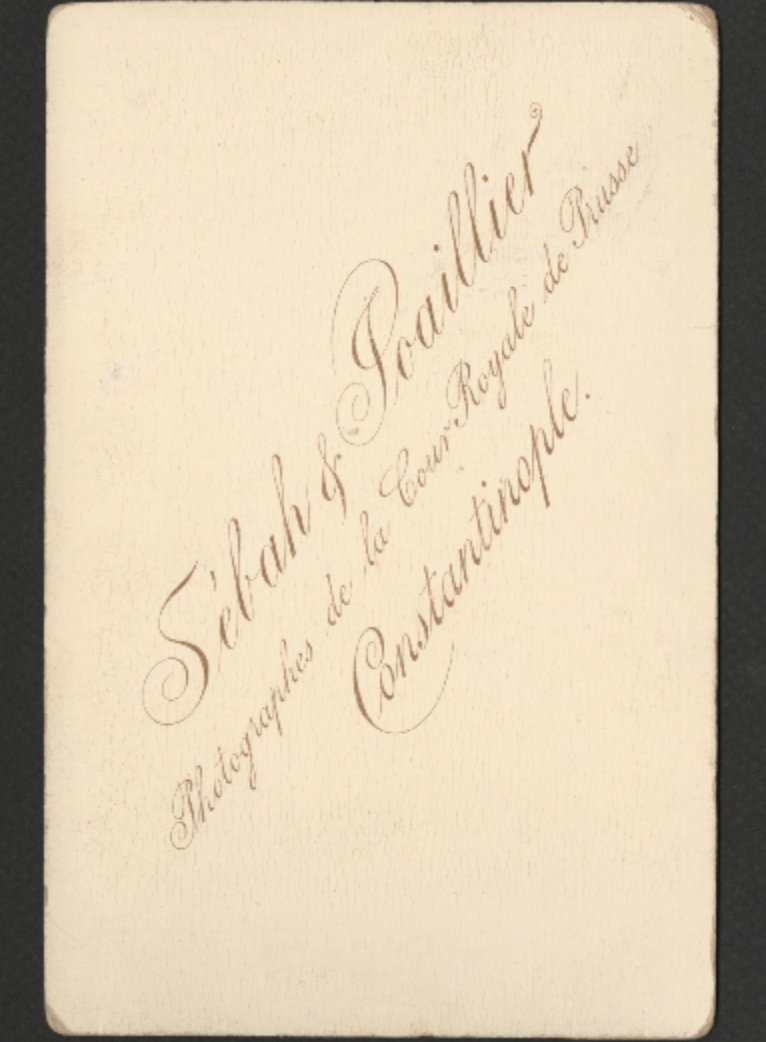 Sébah & Joaillier
Photographes de la Cour Royale de Prusse
Constantinople.